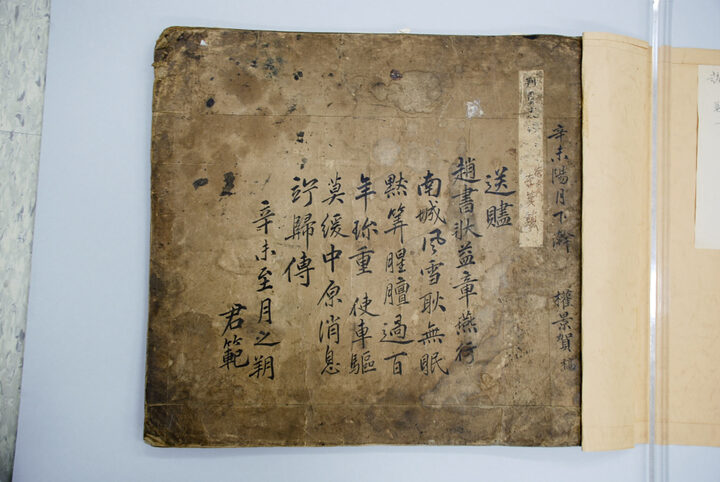 辛未陽月下澣 權景賀 稿
送贐
趙書狀益章燕行
南城風雪耿無眠
黙筭腥膻過百
年珎重 使車驅
莫緩中原消息
訝歸傳
辛未至月之朔
君範